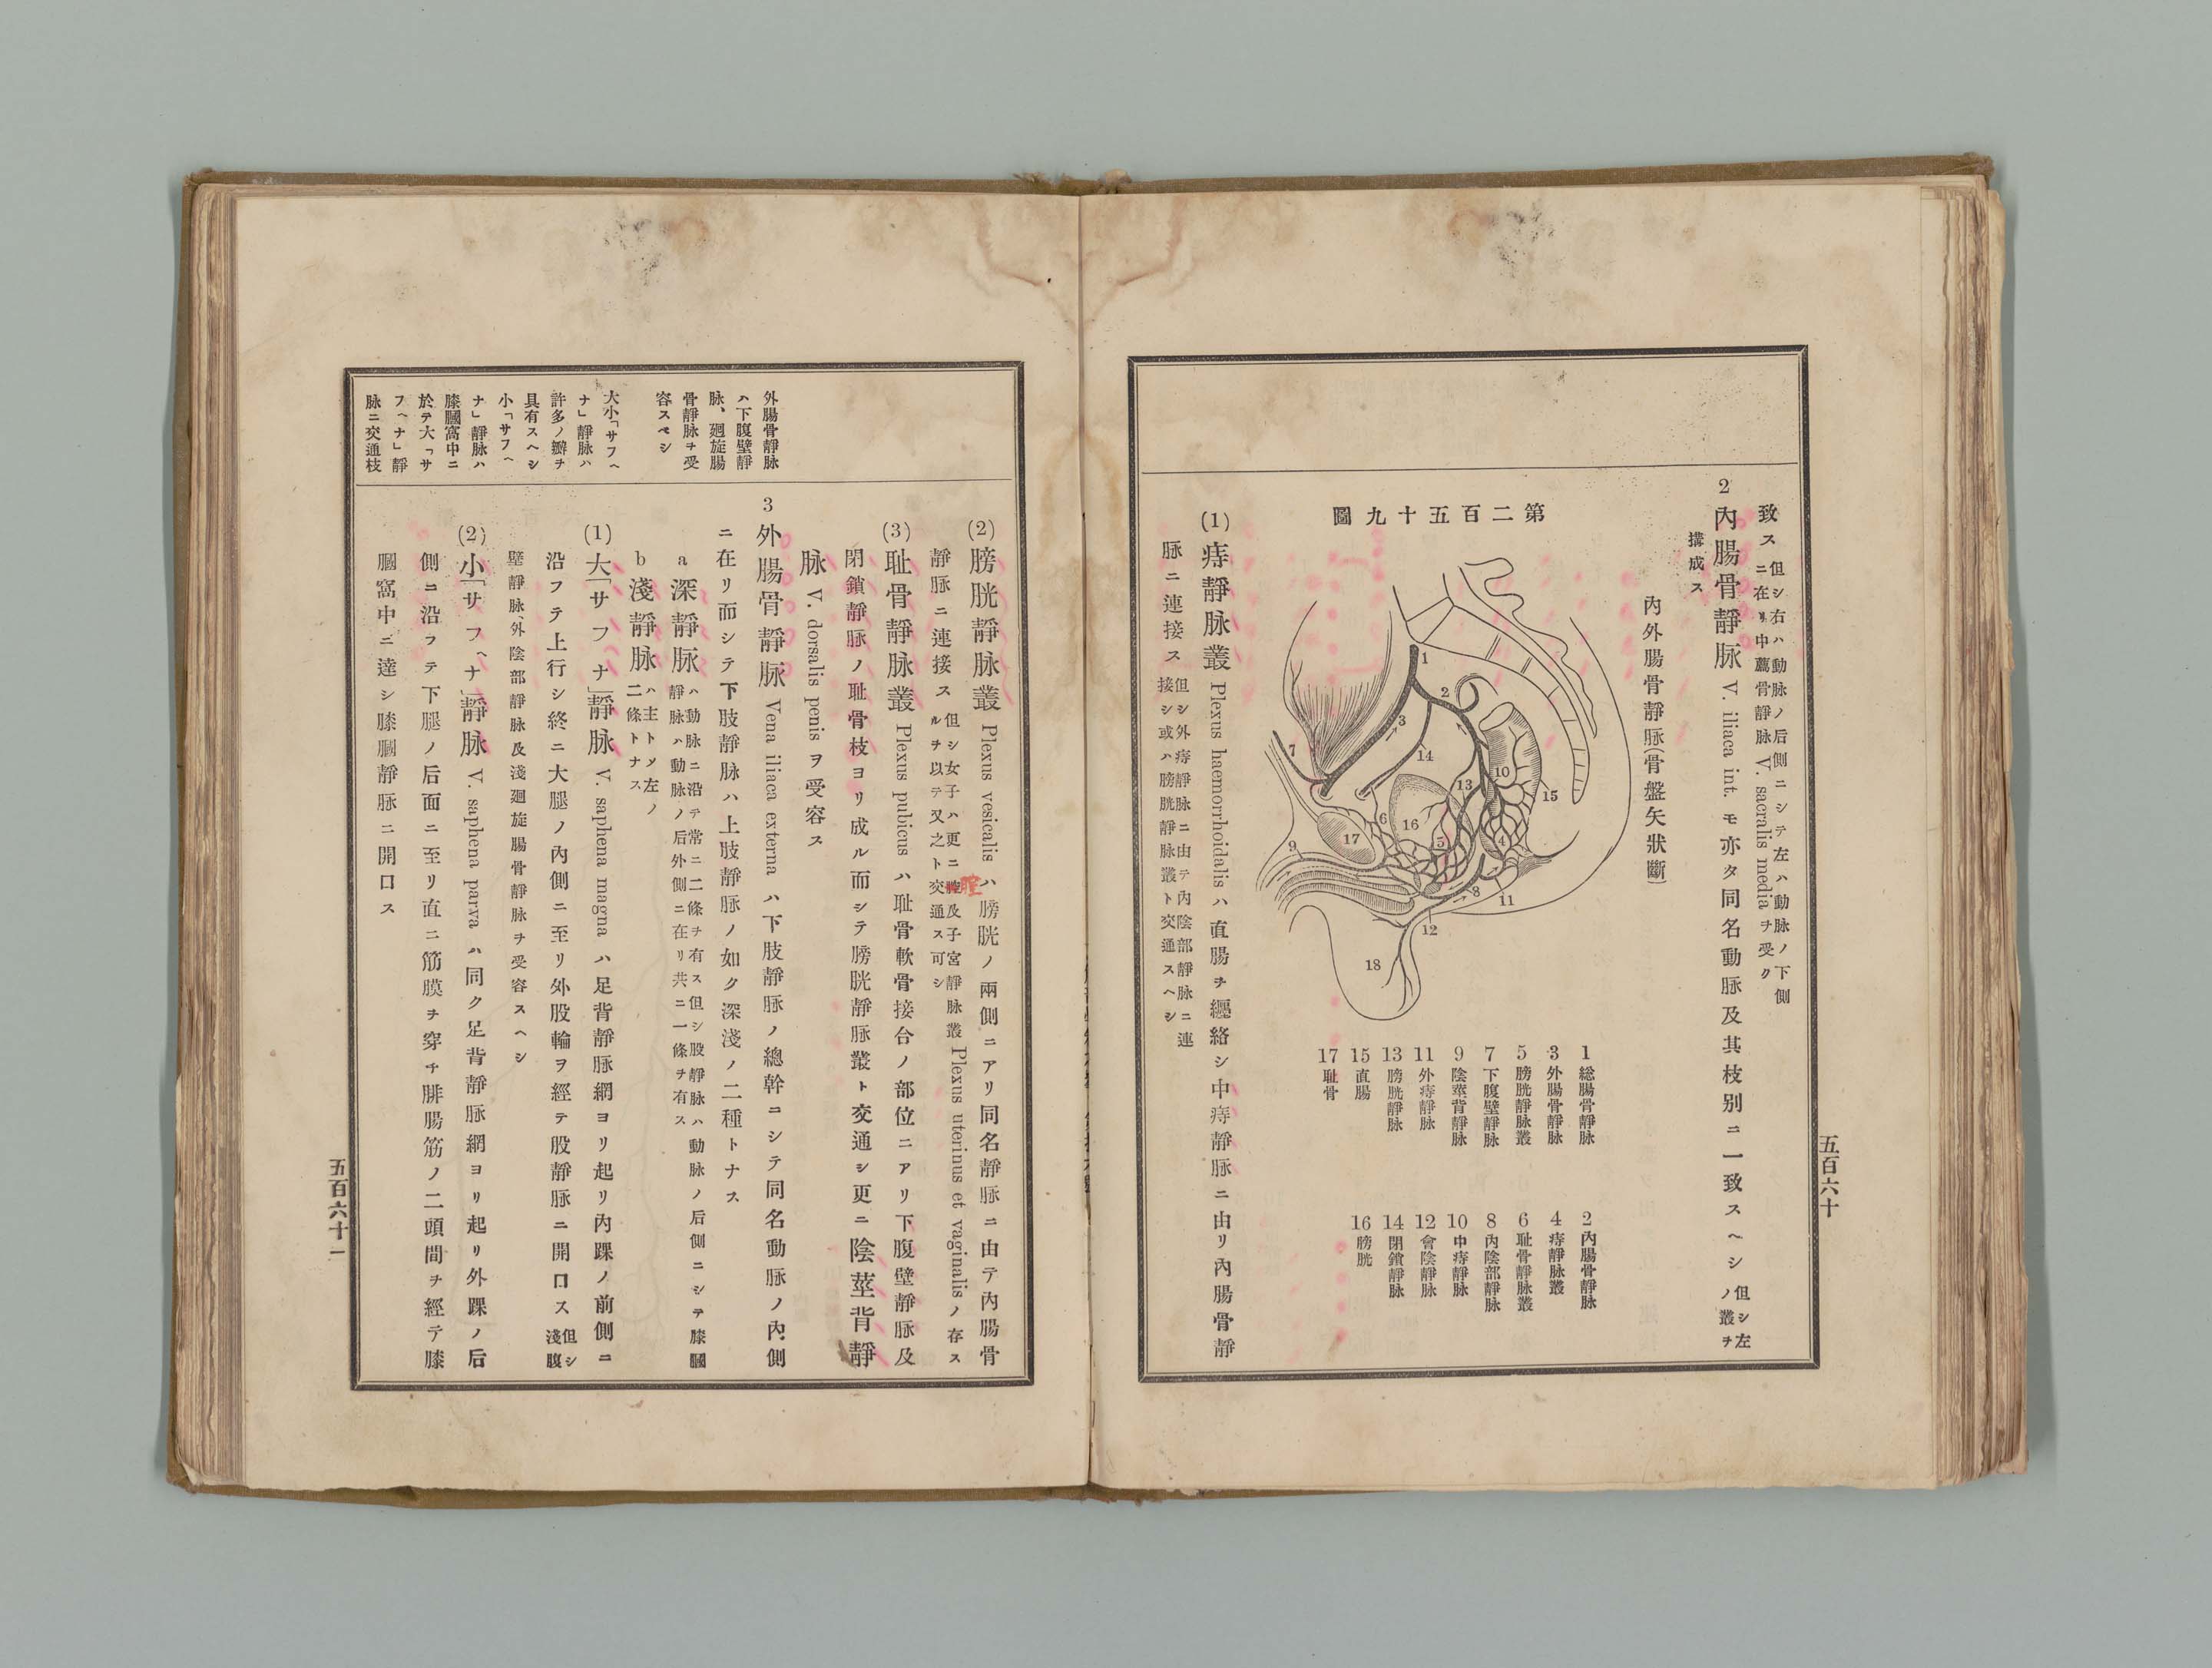 五百六十
致ス 但シ右ハ動脉ノ后側ニシテ左ハ動脉ノ下側
ニ在リ中薦骨靜脉V. sacralis mediaヲ受ク
2 內腸骨靜脉 V. iliaca int. モ亦タ同名動脉及其枝別ニ一致スヘシ 但シ左
ノ叢ヲ
搆成ス
內外腸骨靜脈(骨盤矢狀斷)
第二百五十九圖
1
2
3
14
7
13
10
15
6
16
5
4
17
9
8
11
12
18
1 総腸骨靜脉
2 內腸骨靜脉
3 外腸骨靜脉
4 痔靜脉叢
5 膀胱靜脉叢
6 耻骨靜脉叢
7 下腹壁靜脉
8 內陰部靜脉
9 陰莖背靜脉
10 中痔靜脉
11 外痔靜脉
12 會陰靜脉
13 膀胱靜脉
14 閉鎖靜脉
15 直腸
16 膀胱
17 耻骨
(1) 痔靜脉叢 Plexus haemorrhoidalis ハ直腸ヲ纒絡シ中痔靜脈ニ由リ內腸骨靜
脈ニ連接ス 但シ外痔靜脈ニ由テ內陰部靜脈ニ連
接シ或ハ膀胱靜脉叢ト交通スヘシ
(2) 膀胱靜脉叢 Plexus vesicalis ハ膀胱ノ兩側ニアリ同名靜脈ニ由テ內腸骨
靜脈ニ連接ス 但シ女子ハ更ニ膣及子宮靜脉叢Plexus uterinus et vaginalisノ存ス
ルヲ以テ又之ト交通ス可シ
(3) 耻骨靜脉叢 Plexus pubicus ハ耻骨軟骨接合ノ部位ニアリ下腹壁靜脈及
閉鎖靜脈ノ耻骨枝ヨリ成ル而シテ膀胱靜脈叢ト交通シ更ニ陰莖背靜
脉 V. dorsalis penis ヲ受容ス
外腸骨靜脉
ハ下腹壁靜
脉、廻旋腸
骨靜脉ヲ受
容スベシ
3 外腸骨靜脈 Vena iliaca externa ハ下肢靜脈ノ總幹ニシテ同名動脈ノ內側
ニ在リ而シテ下肢靜脈ハ上肢靜脈ノ如ク深淺ノ二種トナス
a 深靜脉 ハ動脈ニ沿テ常ニ二條ヲ有ス但シ股靜脉ハ動脉ノ后側ニシテ膝膕
靜脈ハ動脈ノ后外側ニ在リ共ニ一條ヲ有ス
b 淺靜脉 ハ主トソ左ノ
二條トナス
大小「サフヘ
ナ」靜脉ハ
許多ノ瓣ヲ
具有スヘシ
小「サフヘ
ナ」靜脉ハ
膝膕窩中ニ
於テ大「サ
フヘナ」靜
脉ニ交通枝
(1) 大「サフヘナ」靜脉 V. saphena magna ハ足背靜脈網ヨリ起リ內踝ノ前側ニ
沿フテ上行シ終ニ大腿ノ內側ニ至リ外股輪ヲ經テ股靜脈ニ開口ス 但シ
淺腹
壁靜脉、外陰部靜脉及淺廻旋腸骨靜脉ヲ受容スヘシ
(2) 小「サフヘナ」靜脉 V. saphena parva ハ同ク足背靜脈網ヨリ起リ外踝ノ后
側ニ沿フテ下腿ノ后面ニ至リ直ニ筋膜ヲ穿チ腓腸筋ノ二頭間ヲ經テ膝
膕窩中ニ達シ膝膕靜脈ニ開口ス
五百六十一